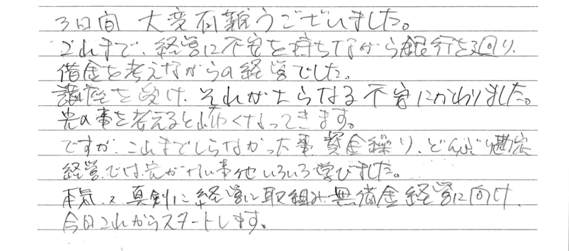 3日間 大変有難うございました。
これまで、経営に不安を持ちながら銀行を廻り、
借金を考えながらの経営でした。
講座を受け、それがさらなる不安にかわりました。
先の事を考えると怖くなってきます。
ですが、これまでしらなかった事、資金繰り、どんぶり勘定
経営では先がない事他いろいろ学びました。
本気で真剣に経営に取組み無借金経営に向け、
今日これからスタートします。